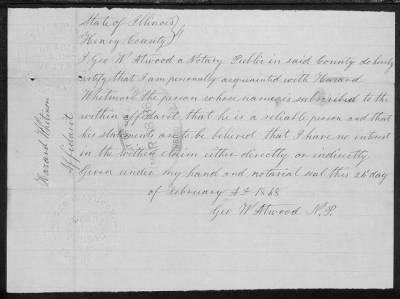 State of Illinois)
Henry County) ss
I Geo W Atwood a Notary Public in said County do hereby
certify that I am personally acquainted with Hazard
Whitmore the person whose name is subscribed to the
within affidavit that he is a reliable person and that
his statements are to be believed that I have no interest
in the within claim either directly or indirectly
Given under my hand and notarial seal this 26 day
of February A.D. 1868
Geo W Atwood N.P.
Hazard Whitmore
Affidavit